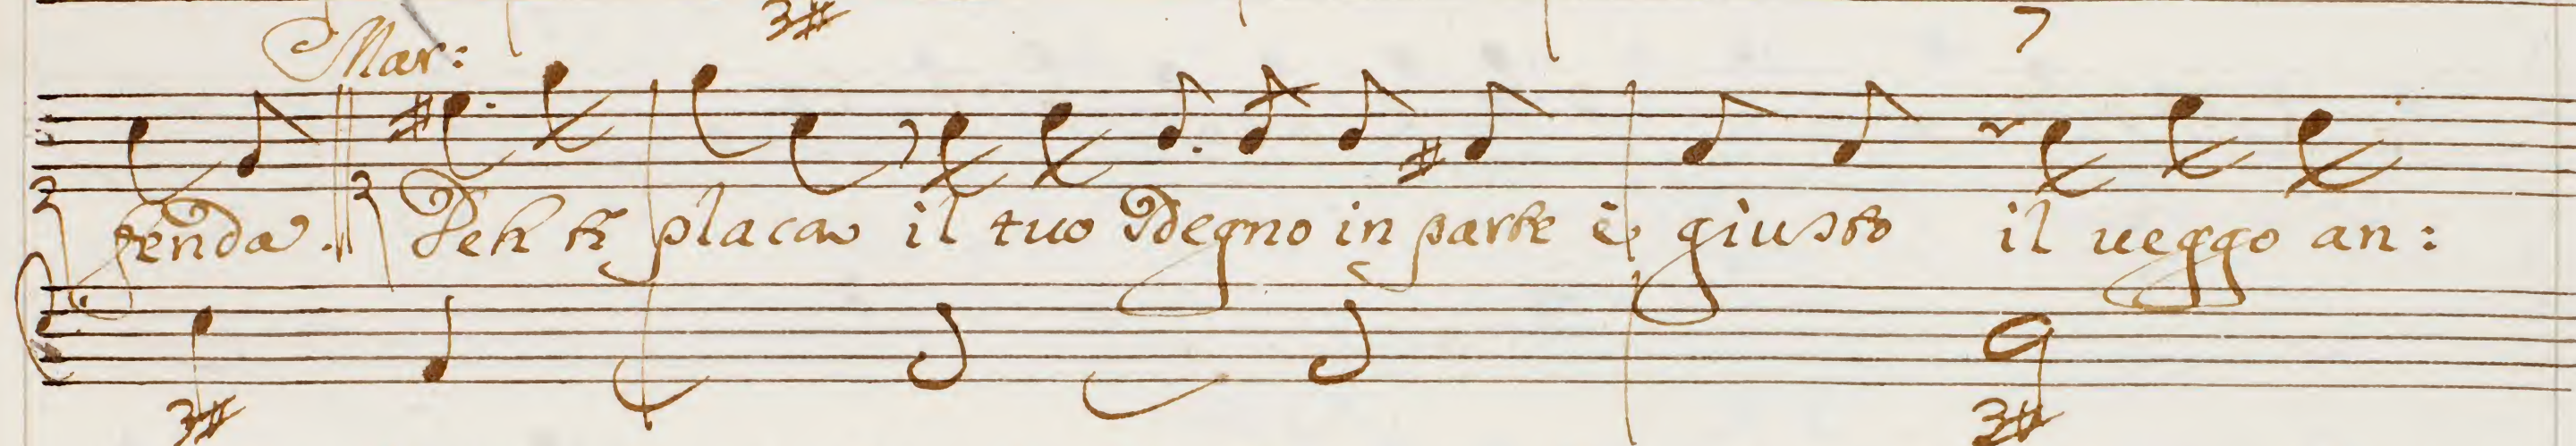 3# 7
Mar:
fenda. Deh ti placa il tuo sdegno in parte è giusto il ueggo an:
3# 3#